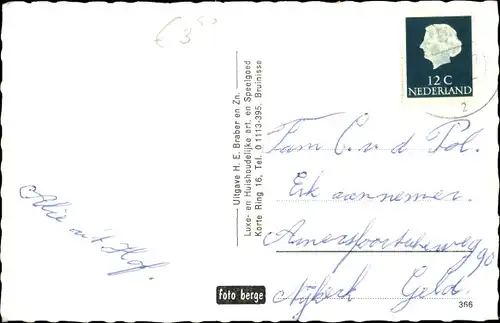 € 3⁵⁰
12 C
NEDERLAND
2
Uitgave H. E. Braber en Zn.
Luxe- en Huishoudelijke art. en Speelgoed
Korte Ring 16, Tel. 01113-395, Bruinisse
Fam C. v d Pol.
Erk aannemer.
Amersfoortseweg 90
Nijkerk Geld.
Alie uit Hof.
foto berge
366